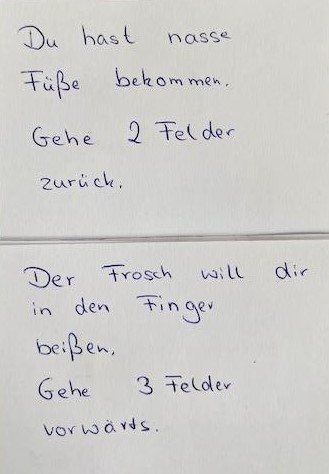 Du hast nasse
Füße bekommen.
Gehe 2 Felder
zurück.
Der Frosch will dir
in den Finger
beißen.
Gehe 3 Felder
vorwärts.